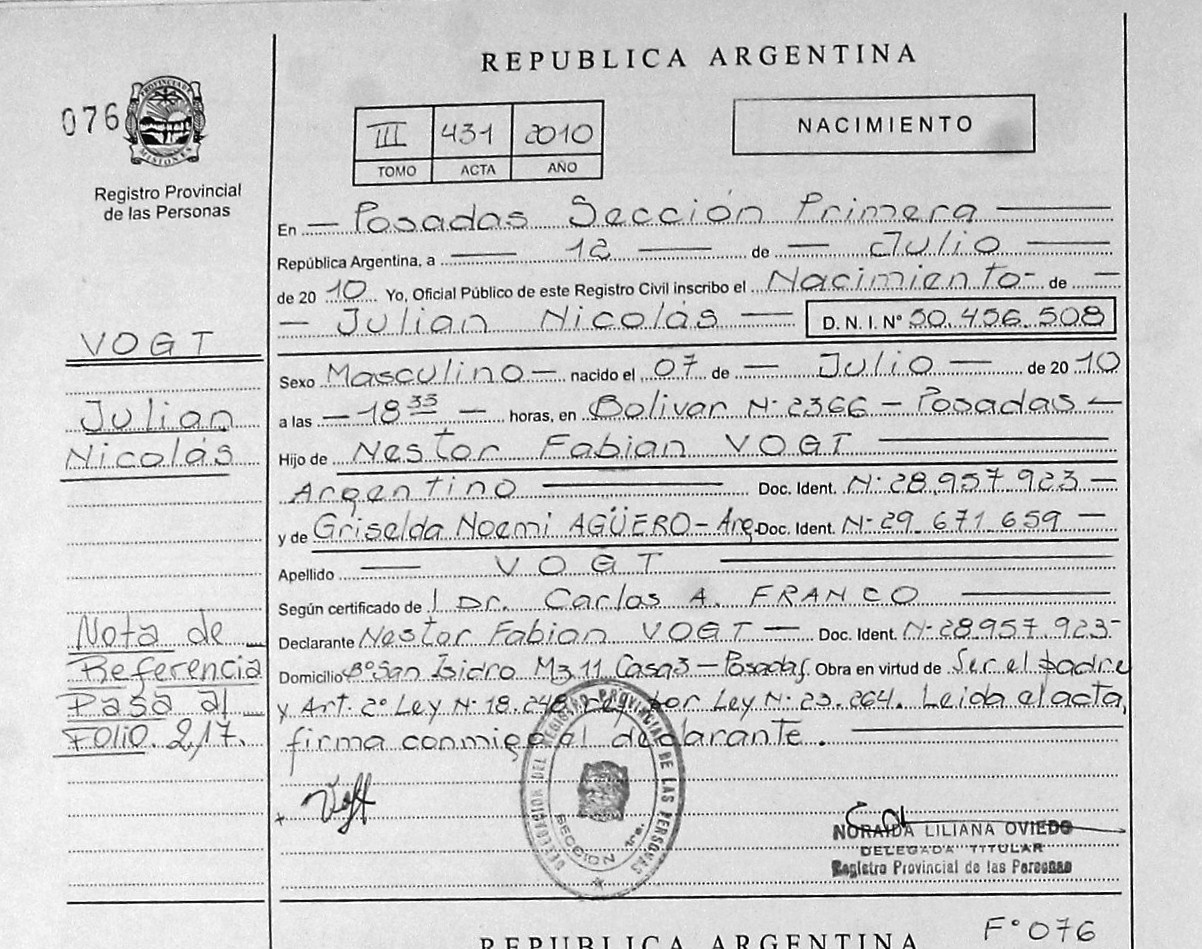 REPUBLICA ARGENTINA
076
PROVINCIA DE
MISIONES
Registro Provincial
de las Personas
III 431 2010
TOMO ACTA AÑO
NACIMIENTO
En Posadas Sección Primera
República Argentina, a 12 de Julio
de 2010 Yo, Oficial Público de este Registro Civil inscribo el Nacimiento de
Julian Nicolás D. N. I. Nº 50.456.508
VOGT
Julian
Nicolás
Sexo Masculino nacido el 07 de Julio de 2010
a las 18 35 horas, en Bolivar Nº 2366 - Posadas
Hijo de Nestor Fabian VOGT
Argentino Doc. Ident. Nº 28.957.923
y de Griselda Noemi AGÜERO - Arg. Doc. Ident. Nº 29.671.659
Apellido VOGT
Según certificado de Dr. Carlos A. FRANCO
Declarante Nestor Fabian VOGT Doc. Ident. Nº 28.957.923
Domicilio Bº San Isidro Mz 11 Casa 3 - Posadas Obra en virtud de Ser el padre
y Art. 2º Ley Nº 18.248 por Ley Nº 23.264. Leida el acta,
firma conmigo el declarante.
Nota de
Referencia
Pasa al
Folio 217.
DELEGACION DEL REGISTRO PROVINCIAL DE LAS PERSONAS
SECCION 1ra.
NORAIDA LILIANA OVIEDO
DELEGADA TITULAR
Registro Provincial de las Personas
Fº 076
REPUBLICA ARGENTINA